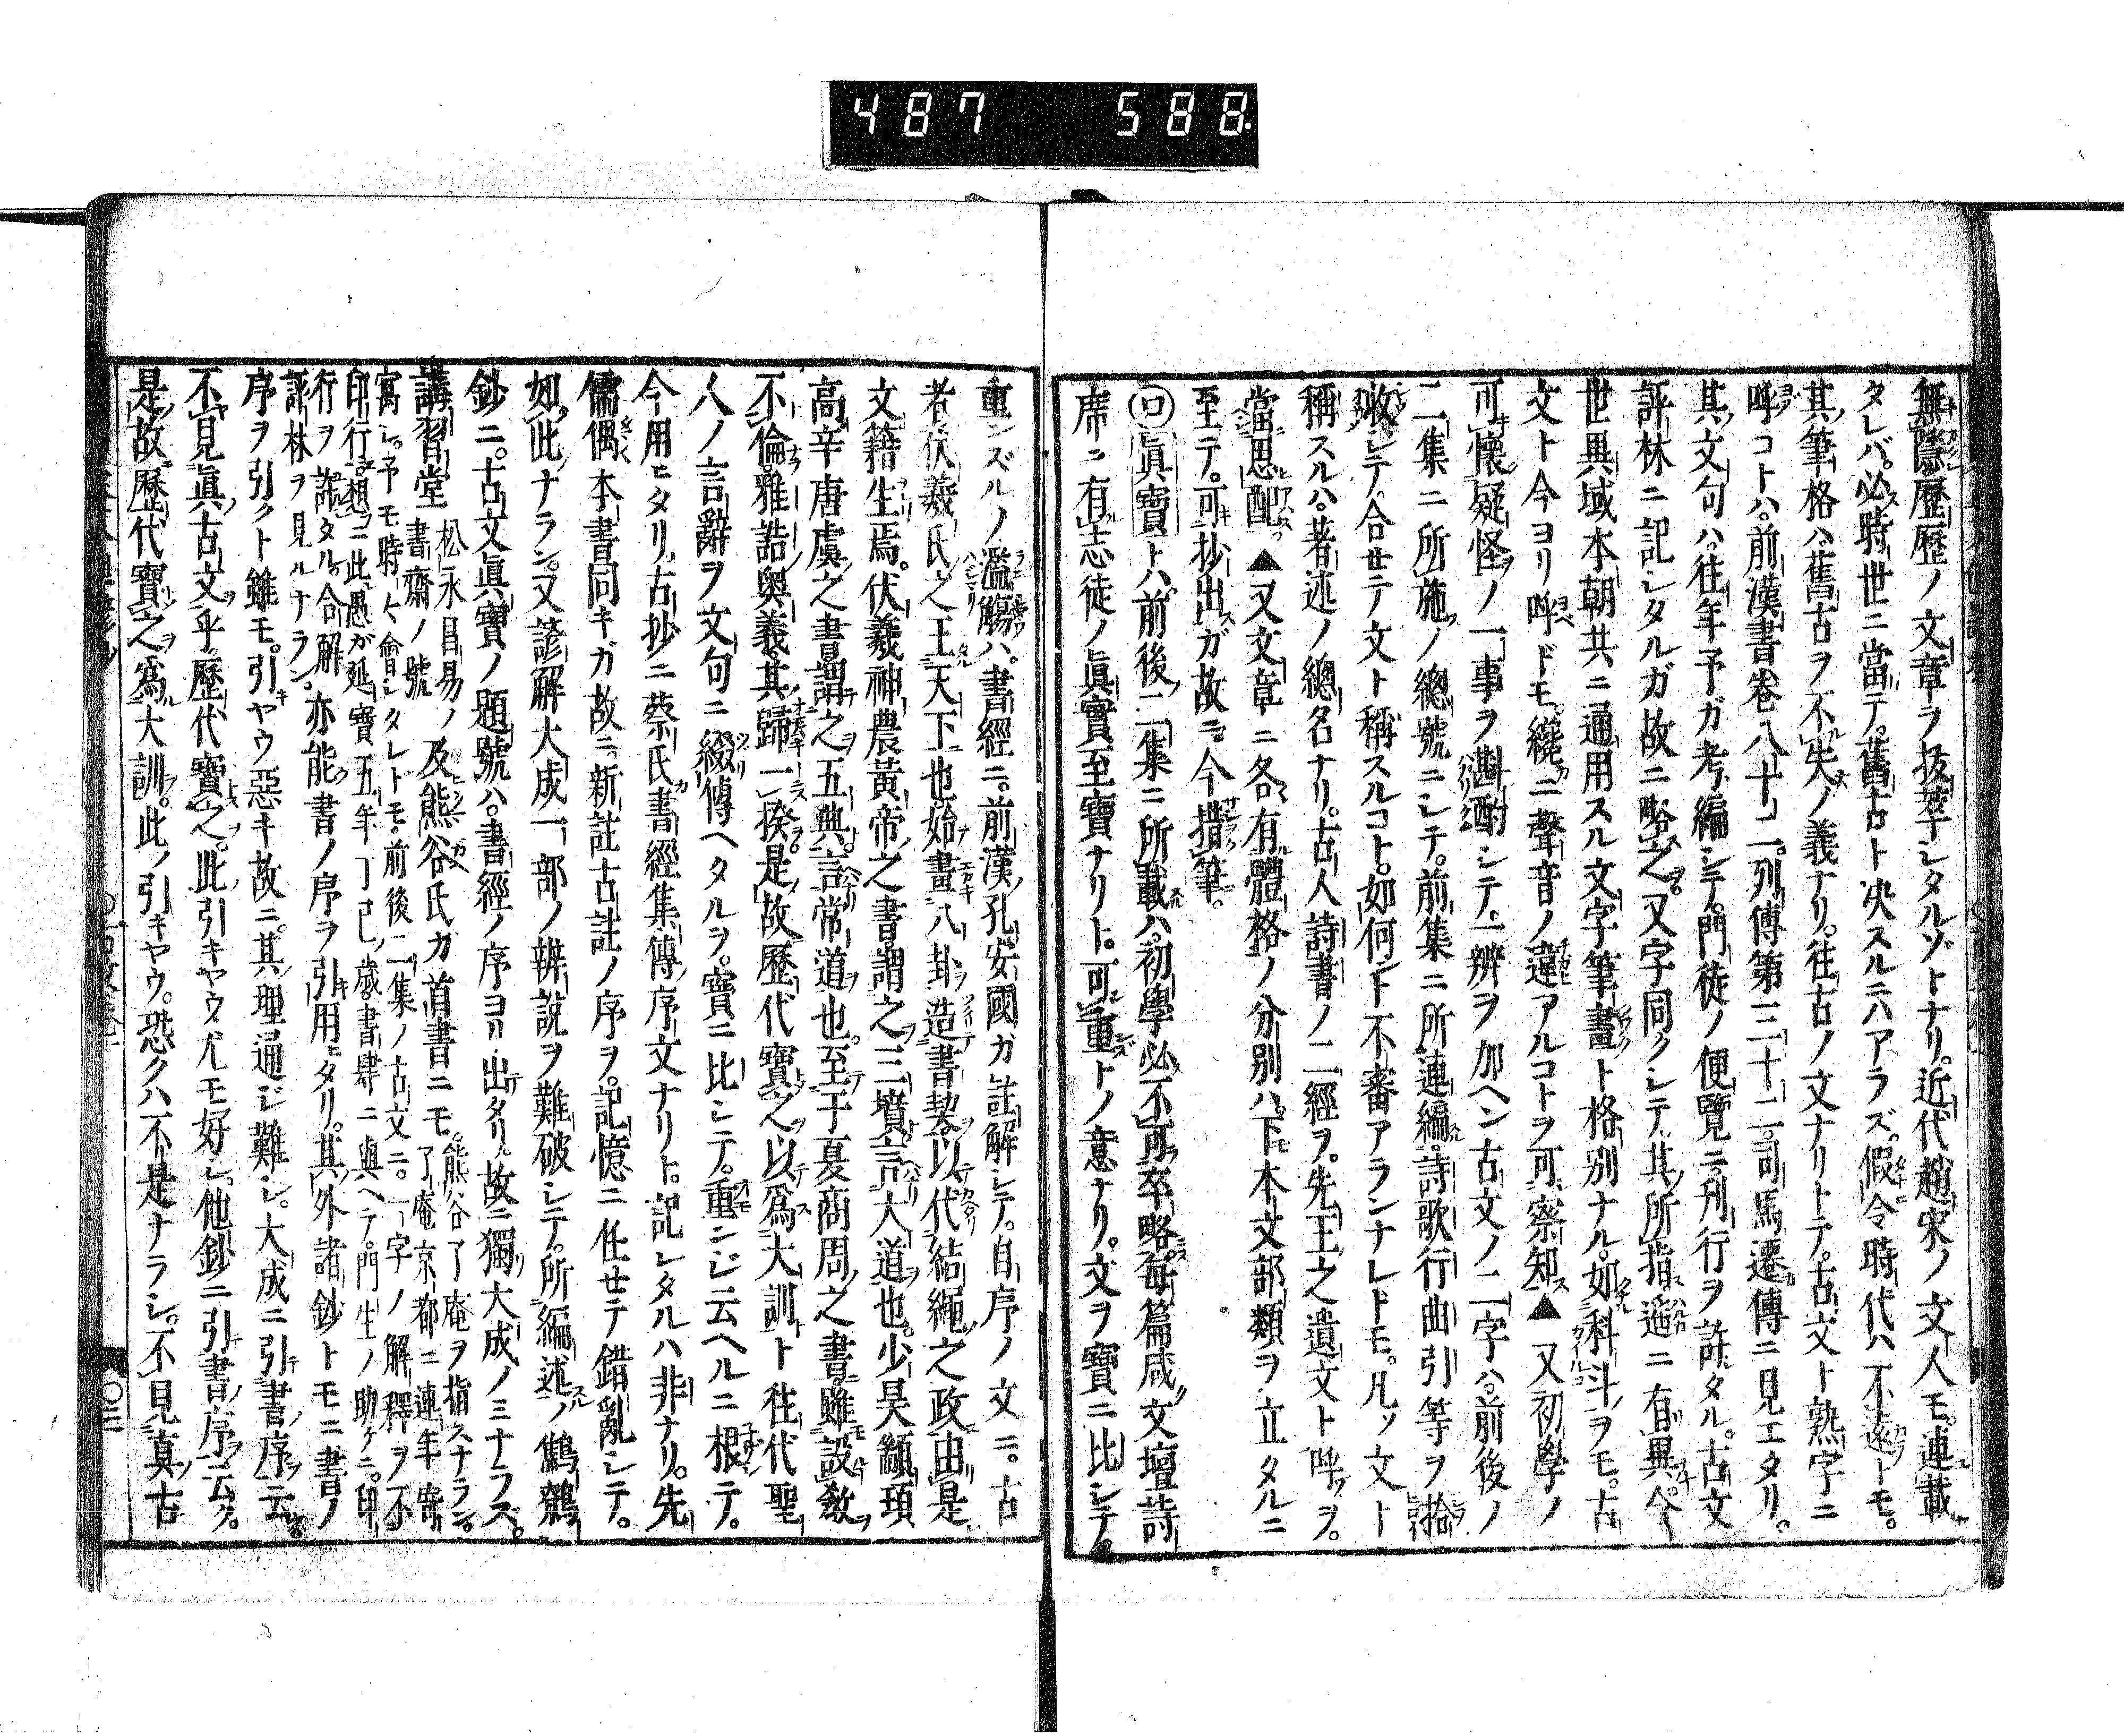 487 588
無際歷歷ノ文章ヲ抜萃シタルゾトナリ。近代趙宋ノ文人モ。連載
タレバ。必時世ニ當テ。舊古ト决スルニハアラズ。假令時代ハ不遠トモ。
其筆格ハ。舊古ヲ不失ノ義ナリ。往古ノ文ナリトテ。古文ト熟字ニ
呼コトハ。前漢書卷八十二。列傳第三十二。司馬遷傳ニ見エタリ。
其文句ハ。往年予ガ考編シテ。門徒ノ便覽ニ。刋行ヲ許タル。古文
評林ニ記シタルガ故ニ略之。又字同クシテ。其所指遙ニ有異。今
世異域本朝共ニ通用スル文字筆畫ト格別ナル。如科斗ヲモ。古
文ト今ヨリ呼ドモ。纔ニ聲音ノ違アルコトヲ可察知。▲又初學ノ
可懷疑怪ノ一事ヲ斟酌シテ。一辨ヲ加ヘン古文ノ二字ハ。前後ノ
二集ニ所施ノ總號ニシテ。前集ニ所連編。詩歌行曲引等ヲ拾
收シテ。合セテ文ト稱スルコト。如何ント不審アランナレドモ。凡ソ文ト
稱スルハ。著述ノ總名ナリ。古人詩書ノ二經ヲ。先王之遺文ト呼ヲ。
當思配。▲又文章ニ各有體格ノ分別ハ。下本文部類ヲ立タルニ
至テ。可抄出ガ故ニ。今措筆。
○口眞寶トハ。前後二集ニ所載ハ。初學必不可卒略。每篇咸文壇詩
席ニ有志徒ノ眞實至寶ナリト。可重トノ意ナリ。文ヲ寶ニ比シテ。
重ンズルノ濫觴ハ。書經ニ。前漢孔安國ガ註解シテ。自序ノ文ニ。古
者伏羲氏之王天下也。始畫八卦造書契以代結繩之政由是
文籍生焉。伏羲神農黃帝之書謂之三墳。言大道也。少昊顓頊
高辛唐虞之書謂之五典。言常道也。至于夏商周之書。雖設教
不倫。雅誥奥義其歸一揆。是故歷代寶之以爲大訓ト往代聖
人ノ言辭ヲ文句ニ綴傳ヘタルヲ。寶ニ比シテ。重ンジ云ヘルニ根テ。
今用ヒタリ。古抄ニ蔡氏書經集傳序文ナリト。記シタルハ非ナリ。先
儒偶本書同キガ故ニ。新註古註ノ序ヲ。記憶ニ任セテ錯亂シテ。
如此ナラン。又諺解大成一部ノ辨說ヲ難破シテ。所編述ノ鷦鷯
鈔ニ。古文眞寶ノ題號ハ。書經ノ序ヨリ出タリ。故ニ獨大成ノミナラズ。
講習堂松永昌易ノ書齋ノ號及熊谷氏ガ首書ニモ。熊谷了庵ヲ指スナラン。了庵京都ニ連年寄
寓シ。予モ時々會シタレドモ。前後二集ノ古文ニ。一字ノ解釋ヲ不
印行。想フニ此愚ガ延寶五年丁巳歲。書肆ニ與ヘテ。門生ノ助ケニ。印
行ヲ許タル合解評林ヲ見ルナラン。亦能書ノ序ヲ引用ヒタリ。其外諸鈔トモニ書ノ
序ヲ引クト雖モ。引ヤウ惡キ故ニ。其理通ジ難シ。大成ニ引書ノ序ヲ云。
不見眞古文乎。歷代寶之。此引キヤウ尤モ好シ。他鈔ニ引書ノ序云ク。
是故歷代寶之爲大訓。此ノ引キヤウ。恐クハ不是ナラシ。不見真古